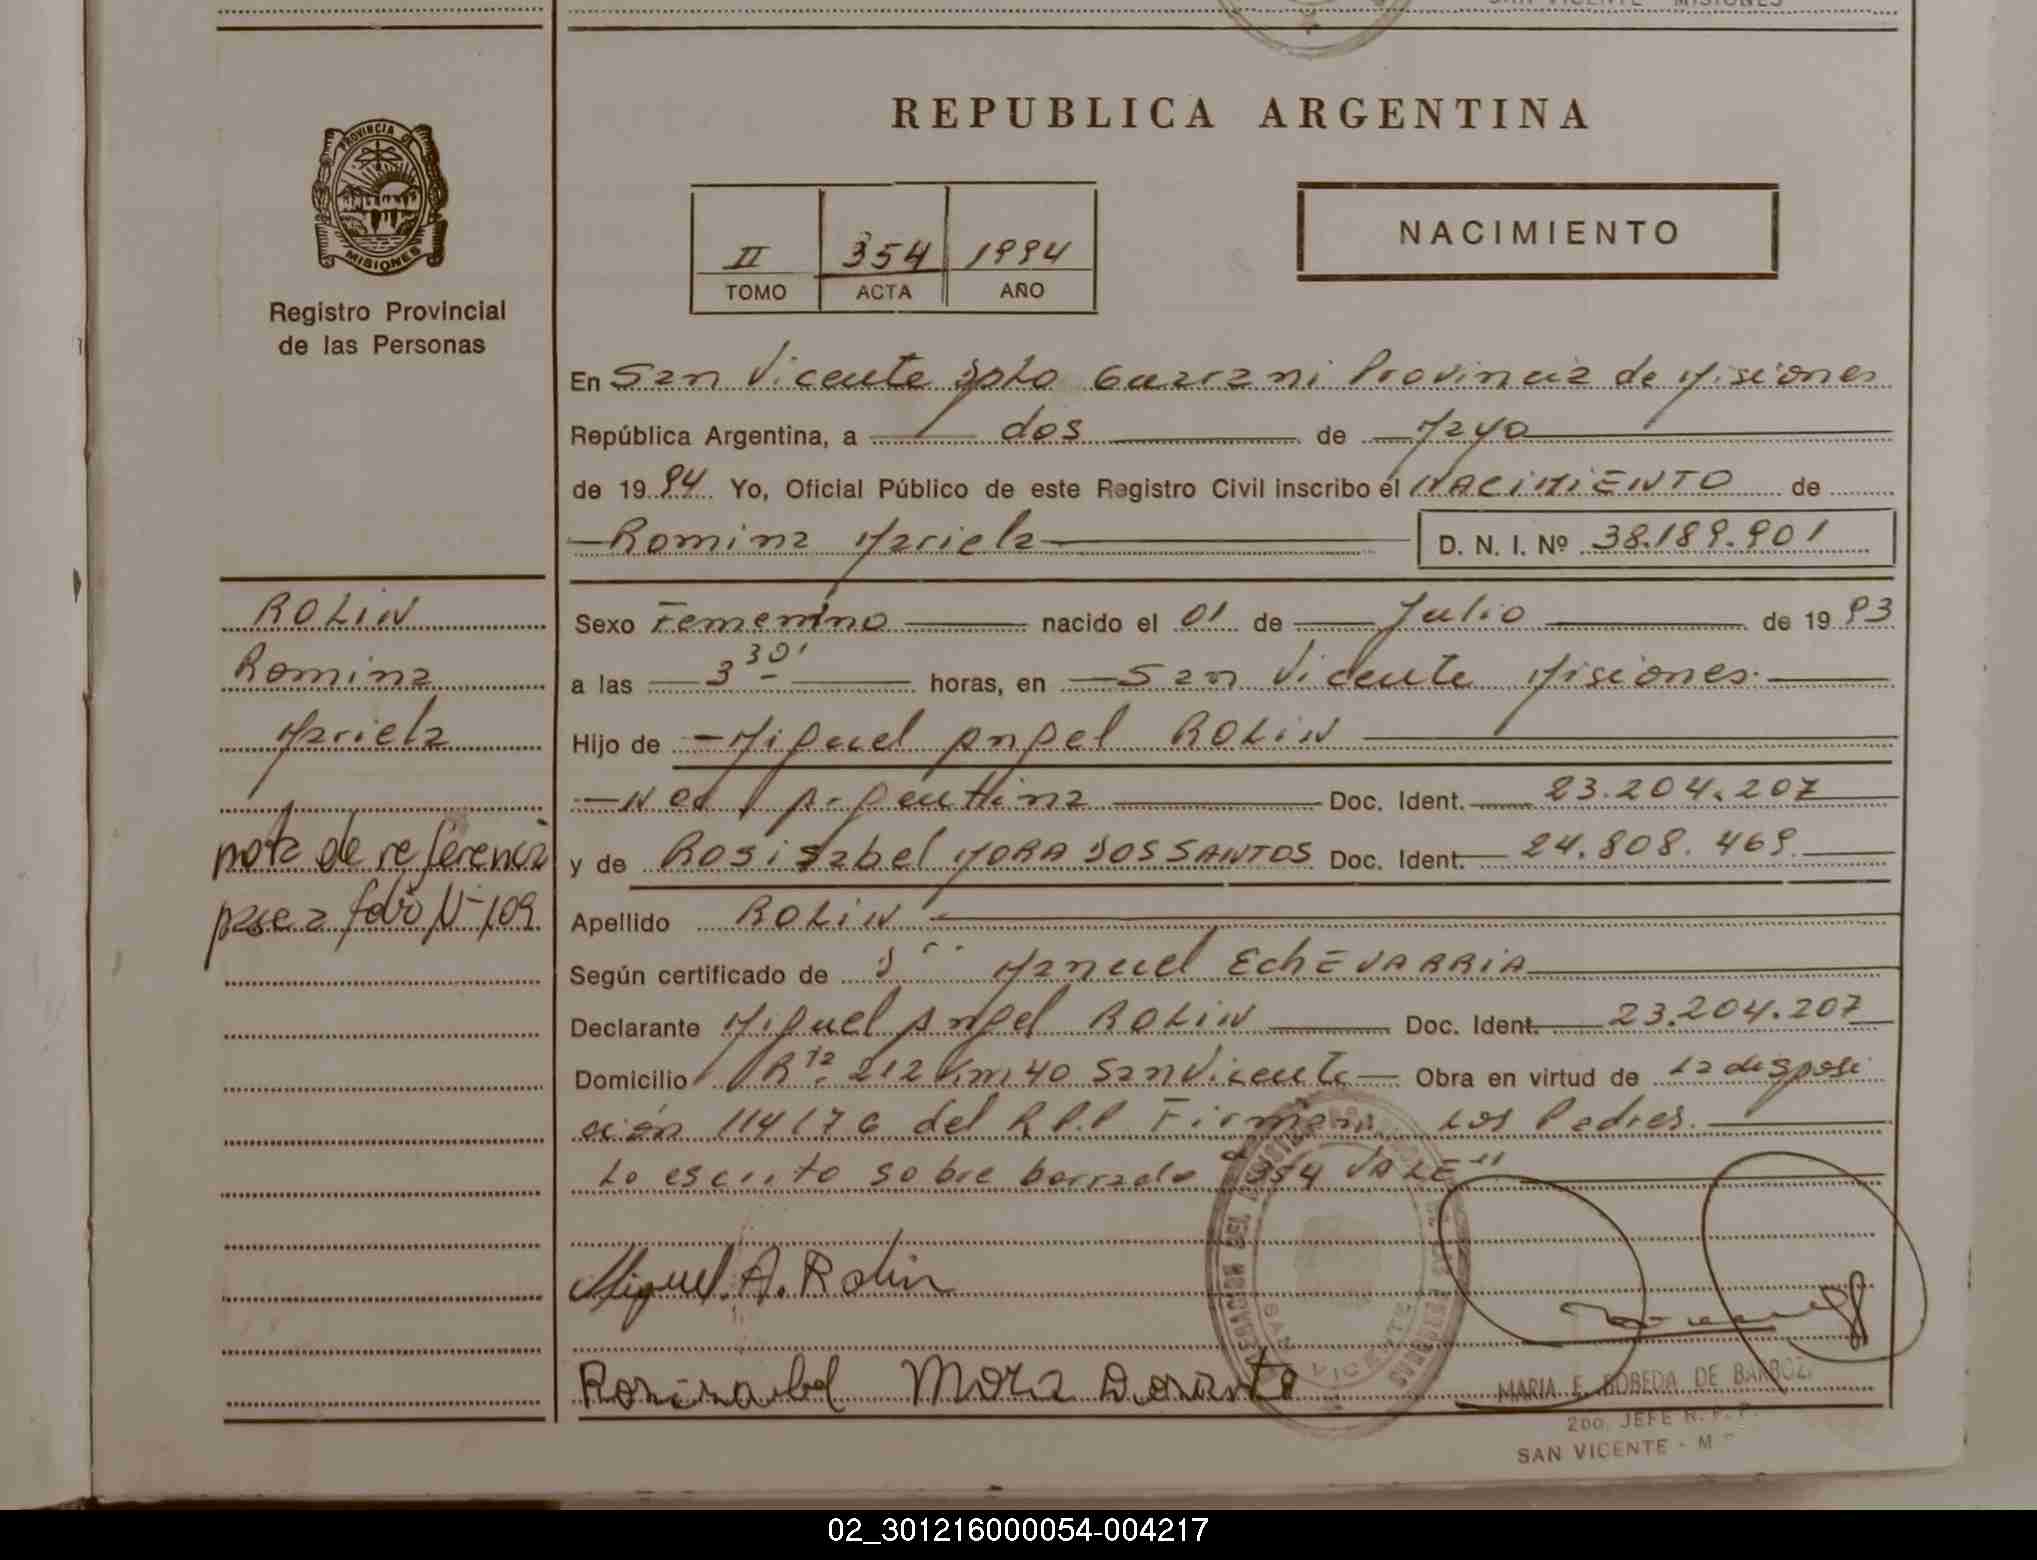 SAN VICENTE - MISIONES
REPUBLICA ARGENTINA
PROVINCIA DE
MISIONES
Registro Provincial
de las Personas
II 354 1994
TOMO ACTA AÑO
NACIMIENTO
En San Vicente Dpto Guarani Provincia de Misiones
República Argentina, a dos de Mayo
de 1994 Yo, Oficial Público de este Registro Civil inscribo el NACIMIENTO de
Romina Mariela D. N. I. Nº 38.189.901
ROLIN
Romina
Mariela
nota de referencia
pase a folio N-109
Sexo Femenino nacido el 01 de Julio de 1993
a las 3 30' horas, en San Vicente Misiones
Hijo de Miguel Angel ROLIN
Nac Argentina Doc. Ident. 23.204.207
y de Rosisabel MORA DOS SANTOS Doc. Ident. 24.808.469
Apellido ROLIN
Según certificado de Manuel EchEVARRIA
Declarante Miguel Angel ROLIN Doc. Ident. 23.204.207
Domicilio Rta. 212 Km 40 San Vicente Obra en virtud de La disposi
ción 114/76 del R.P.P Firman Los Padres.
Lo escrito sobre borrado "354 VALE"
Miguel. A. Rolin
Rosisabel Mora
SAN VICENTE
MARIA E. BOBEDA DE BARBOZA
2DO. JEFE R. P. P.
SAN VICENTE - M
02_301216000054-004217